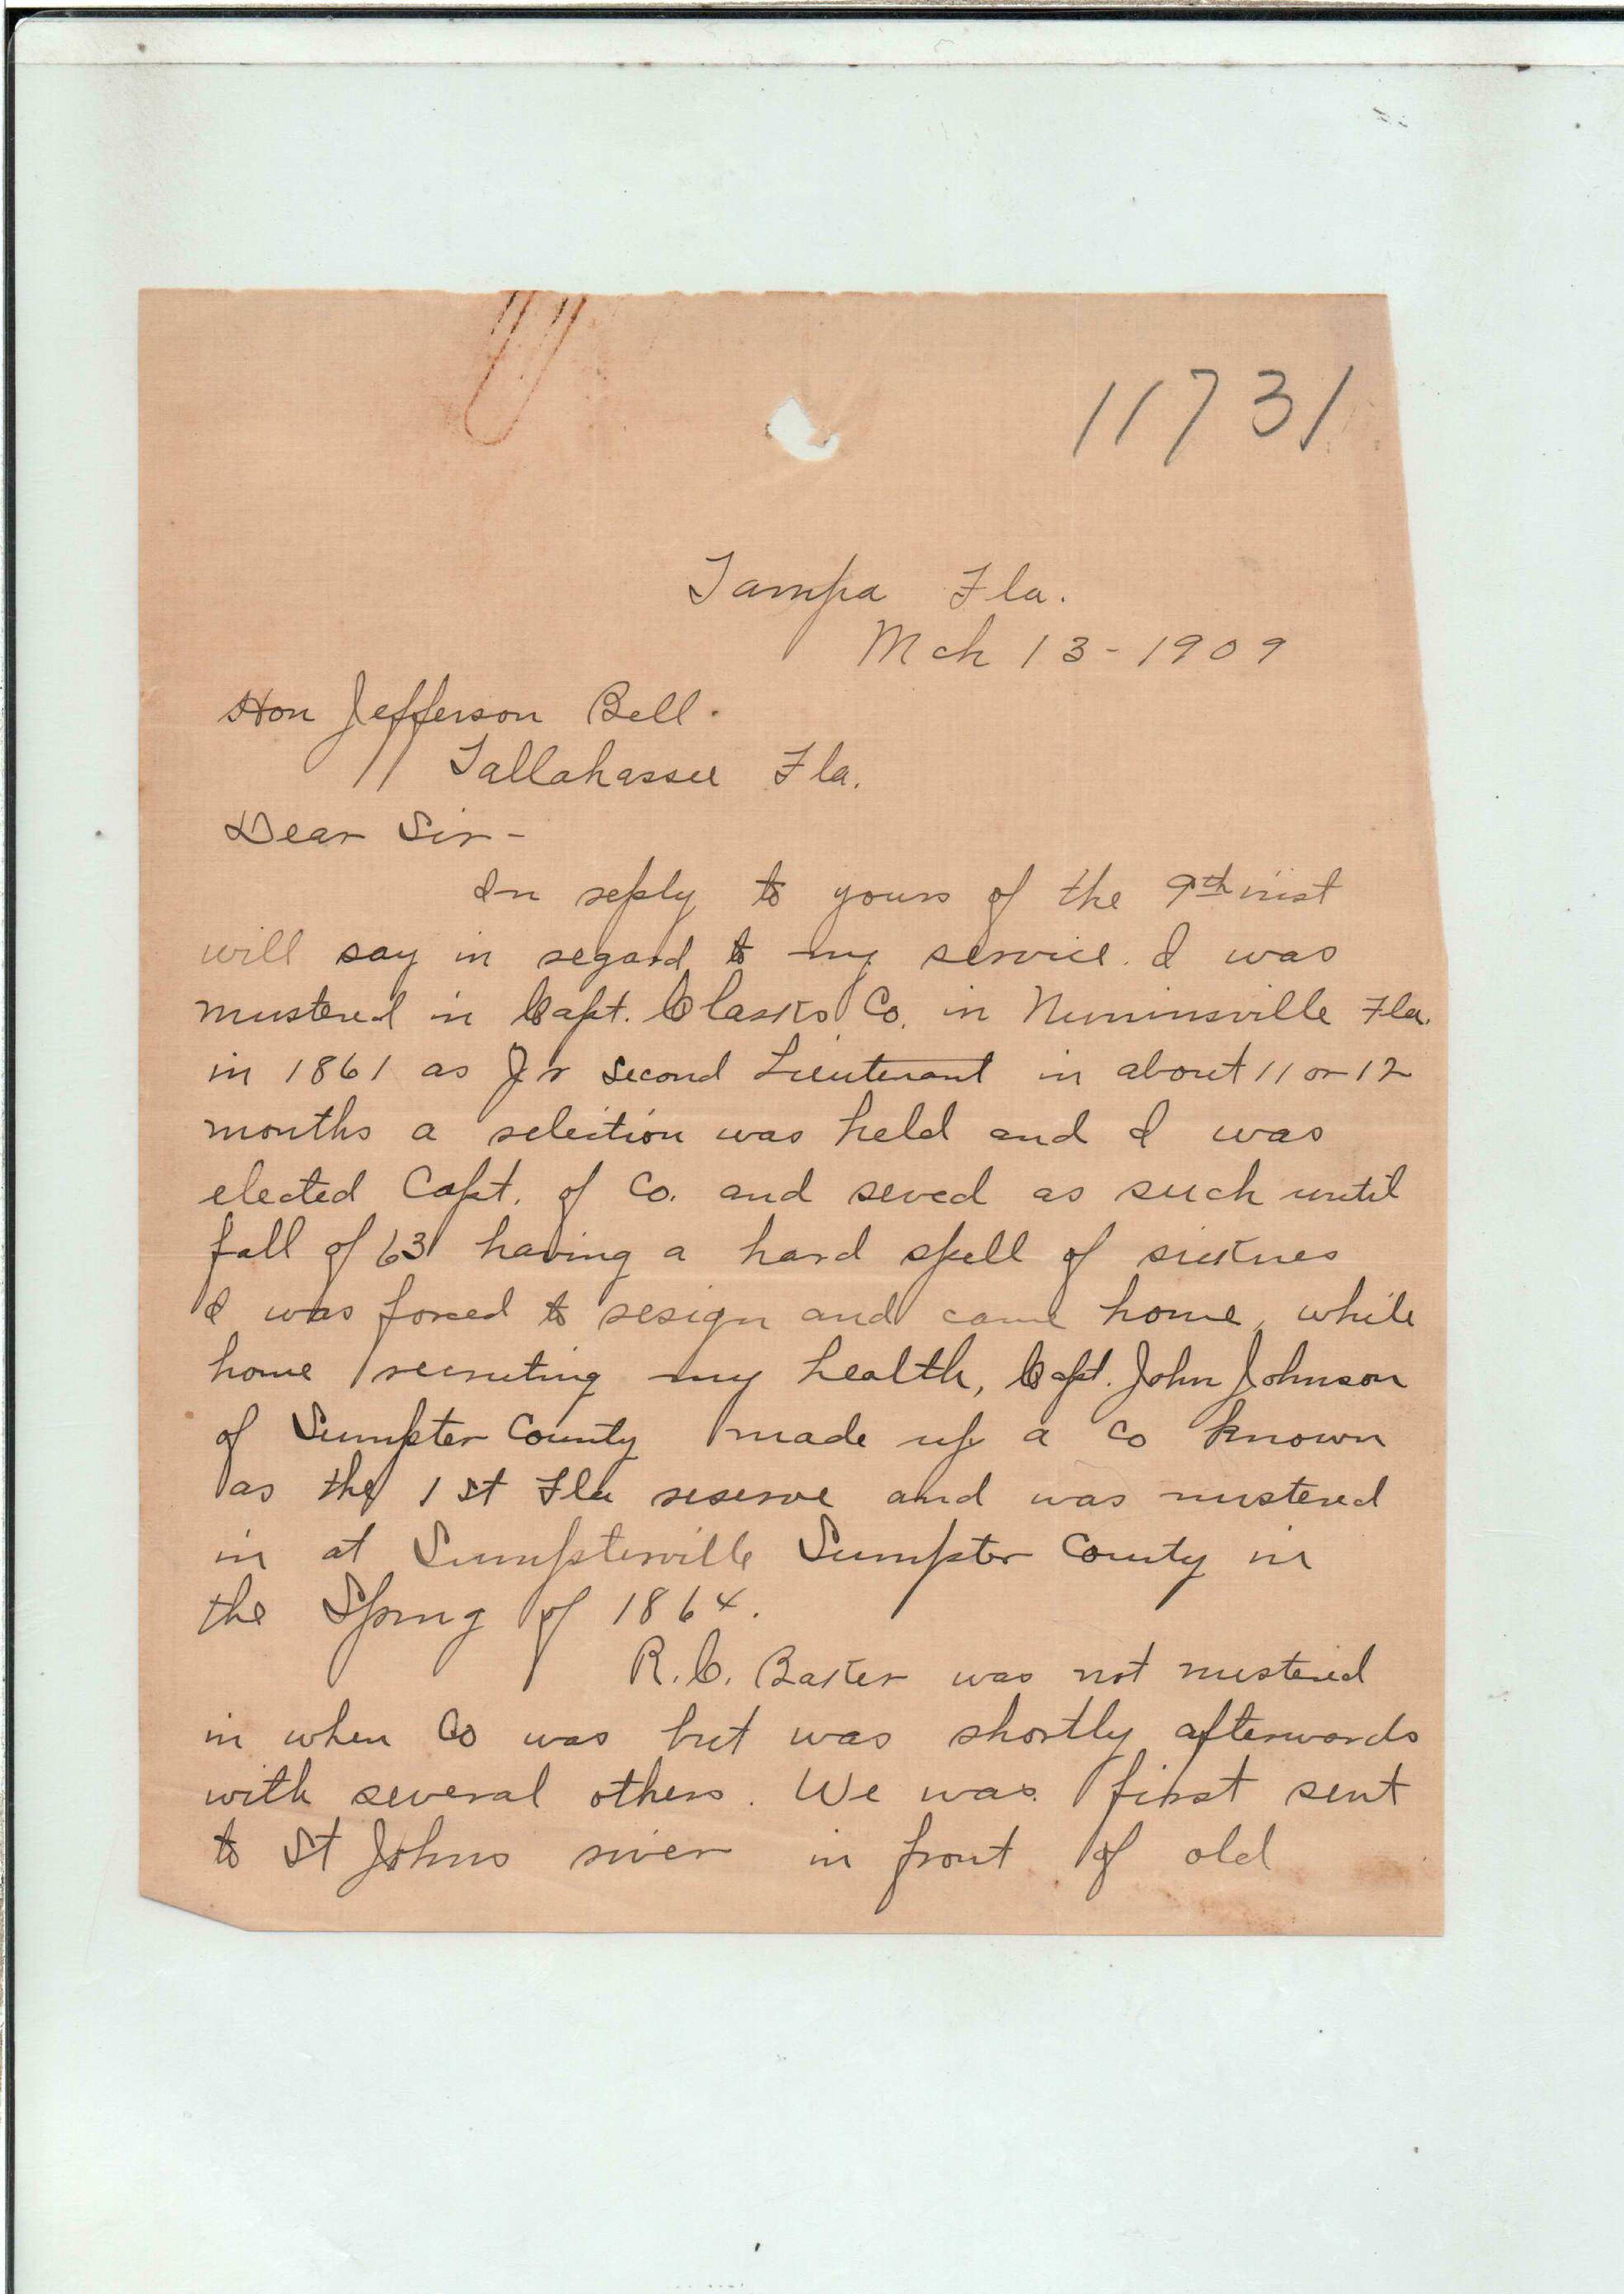 11731
Tampa Fla.
Mch 13-1909
Hon Jefferson Bell.
Tallahassee Fla.
Dear Sir-
In reply to yours of the 9th inst
will say in regard to my service. I was
mustered in Capt. Clarks Co. in Fla.
in 1861 as Jr Second Lieutenant in about 11 or 12
months a selection was held and I was
elected Capt. of Co. and seved as such until
fall of 63 having a hard spell of sicknes
I was forced to resign and came home, while
home recruting my health, Capt. John Johnson
of Sumpter County made up a Co known
as the 1st Fla reserve and was mustered
in at Sumpterville Sumpter County in
the Spring of 1864.
R.C. Baker was not mustered
in when Co was but was shortly afterwards
with several others. We was first sent
to St Johns river in front of old